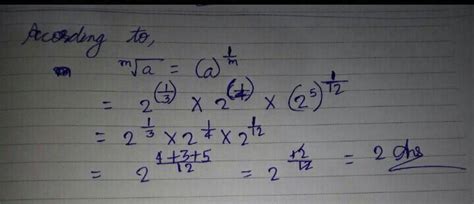 Acording to,
ᵐ√a = (a)^(1/m)
= 2^(1/3) × 2^(1/4) × (2^5)^(1/12)
= 2^(1/3) × 2^(1/4) × 2^(1/12)
= 2^((4+3+5)/12) = 2^(12/12) = 2 Ans